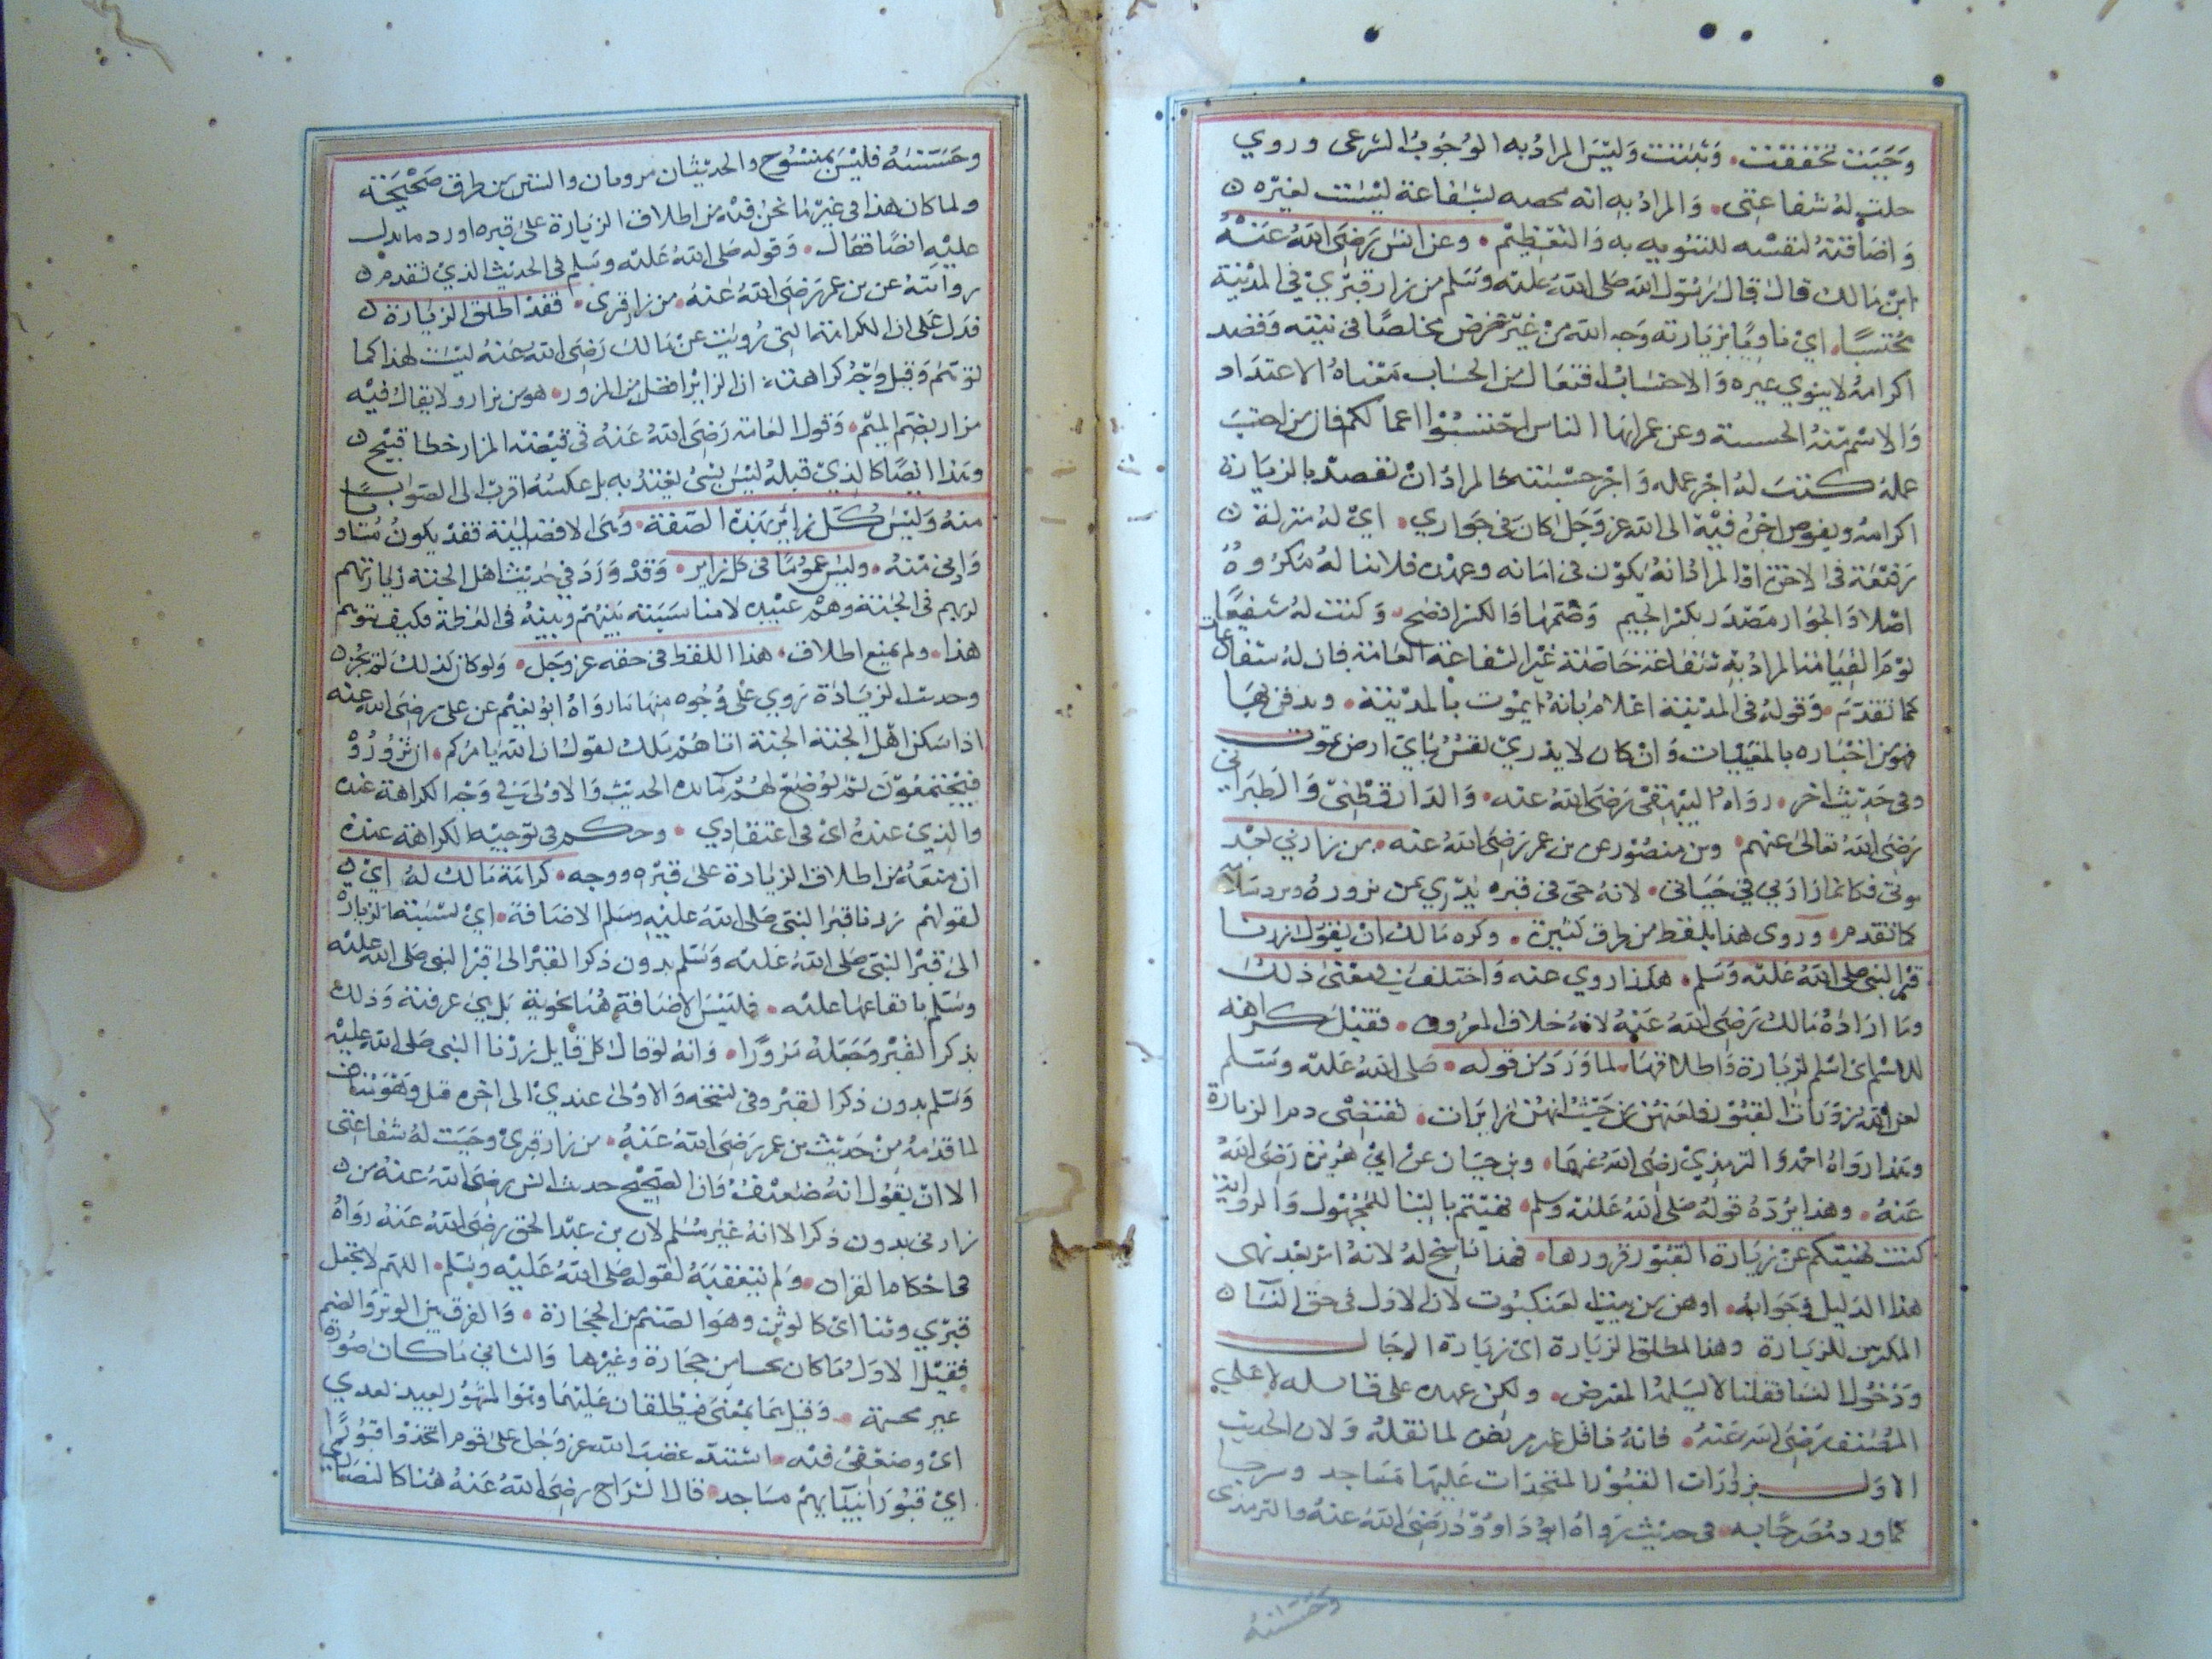 وجبت تحققت وثبتت وليس المراد به الوجوب الشرعى وروي
حلت له شفاعتى والمراد به انه يخصه بشفاعة ليست لغيره
واضافته لنفسه للتنويه به والتعظيم وعن انس رضى الله عنه
ابن مالك قال قال رسول الله صلى الله عليه وسلم من زار قبري في المدينة
محتسبا اي ناويا بزيارته وجه الله من غير غرض مخلصا في نيته وقصد
اكرامه لا ينوي غيره والاحتساب افتعال من الحساب معناه الاعتداد
والاسم منه الحسبة وعن عمر ايها الناس احتسبوا اعمالكم فان من احتسب
عمله كتب له اجر عمله واجر حسبته فالمراد ان تقصد بالزيارة
اكرامه ويفوض اجره فيه الى الله عز وجل كان فى جواري اي له منزلة
رفيعة فى الاخرة او المراد انه يكون فى امانه وعهده فلا يناله مكروه
اصلا والجوار مصدر بكسر الجيم وضمها والكسر افصح وكنت له شفيعا
يوم القيامة المراد به شفاعة خاصة غير الشفاعة العامة فان له شفاعات
كما تقدم وقوله فى المدينة اعلام بانه يموت بالمدينة ويدفن بها
فهو من اخباره بالمغيبات وان كان لا يدري نفس باي ارض تموت
وفى حديث اخر رواه البيهقى رضى الله عنه والدارقطنى والطبرانى
رضى الله تعالى عنهم وبن منصور عن بن عمر رضى الله عنه من زارني بعد
موتى فكانما زارني في حياتى لانه حى فى قبره يدري بمن يزوره ويرد سلامه
كما تقدم وروى هذا بلفظ من طرق كثيرة وكره مالك ان يقول زرنا
قبر النبى صلى الله عليه وسلم هكذا روي عنه واختلف في معنى ذلك
وما اراده مالك رضى الله عنه لانه خلاف المعروف فقيل كراهة
للاسم اى اسم الزيارة واطلاقها لما ورد من قوله صلى الله عليه وسلم
لعن الله زوارات القبور فلعنهن من حيث انهن زايرات تقتضى دم الزيارة
وهذا رواه احمد والترمذي رضى الله عنهما وبن حبان عن ابي هريرة رضى الله
عنه وهذا يرده قوله صلى الله عليه وسلم نهيتم بالبنا للمجهول والرواية
كنت نهيتكم عن زيارة القبور فزورها فهذا ناسخ له لانه امر بعد نهى
هذا الدليل وجوابه اوهن من بيت العنكبوت لان الاول فى حق النسا
المكثرين للزيارة وهذا لمطلق الزيارة اى زيارة الرجال
ودخول النسا فقلنا لا يسلمه المعترض ولكن عهده على قايله لا على
المصنف رضى الله عنه فانه ناقل غير مريض لما نقله ولان الحديث
الاول زوارات القبور المتخذات عليها مساجد وسرجا
كما ورد مصرحا به فى حديث رواه ابو داوود رضى الله عنه والترمذى
وحسنه
وحسنه فليس بمنسوخ والحديثان مرويان والسنن من طرق صحيحة
ولما كان هذا فى غير ما نحن فيه من اطلاق الزيارة على قبره اورد ما يدل
عليه ايضا فقال وقوله صلى الله عليه وسلم فى الحديث الذي تقدم
روايته عن بن عمر رضى الله عنه من زار قبرى فقد اطلق الزيارة
فدل على ان الكراهة التى رويت عن مالك رضى الله عنه ليست لهذا كما
توهم وقيل وجه كراهته ان الزاير افضل من المزور هو من زار ولا يقال فيه
مزار بضم الميم وقول العامة رضى الله عنه فى قبضة المزار خطا قبيح
وهذا ايضا كالذي قبله ليس بشئ يعتد به بل عكسه اقرب الى الصواب
منه وليس كل زاير بهذه الصفة وهى الافضلية فقد يكون مساويا
وادنى منه وليس عموما فى كل زاير وقد ورد في حديث اهل الجنة زيارتهم
لربهم فى الجنة وهم عبيده لا مناسبة بينهم وبينه فى العظمة فكيف يتوهم
هذا ولم يمنع اطلاق هذا اللفظ فى حقه عز وجل ولو كان كذلك لم يجز
وحديث الزيادة روي على وجوه منها ما رواه ابو نعيم عن على رضى الله عنه
اذا سكن اهل الجنة الجنة اتاهم ملك يقول ان الله يامركم ان تزوروه
فيجتمعون ثم توضع لهم مايده الحديث والاولى في وجه الكراهة عنده
والذي عنده اى فى اعتقادي وحكم فى توجيه الكراهة عنده
ان منعه من اطلاق الزيارة على قبره ووجه كراهة مالك له اي
لقولهم زرنا قبر النبى صلى الله عليه وسلم الاضافة اي نسبة الزيارة
الى قبر النبى صلى الله عليه وسلم بدون ذكر القبر الى قبر النبى صلى الله عليه
وسلم بايقاعها عليه فليس الاضافة هنا نحوية بل هي عرفية وذلك
بذكر القبر وجعله مزورا وانه لو قال كل قايل زرنا النبى صلى الله عليه
وسلم بدون ذكر القبر وفى نسخه والاولى عندي الى اخره قيل وهو مناف
لما قدمه من حديث بن عمر رضى الله عنه من زار قبرى وجبت له شفاعتى
الا ان يقول انه ضعيف وان الصحيح حديث انس رضى الله عنه من
زارنى بدون ذكر الا انه غير مسلم لان بن عبد الحق رضى الله عنه رواه
فى احكام القران ولم يتعقبه لقوله صلى الله عليه وسلم اللهم لا تجعل
قبري وثنا اى كالوثن وهو الصنم من الحجارة والفرق بين الوثن والصنم
فقيل الاول ما كان نحسا من حجارة وغيرها والثاني ما كان صورة
غير مجسمة وقيل هما بمعنى فيطلقان عليهما وهو المشهور يعبد بعدي
اى وضعفى فيه اشتد غضب الله عز وجل على قوم اتخذوا قبورا
اي قبور انبيايهم مساجد قال السراج رضى الله عنه هنا كالنصارى